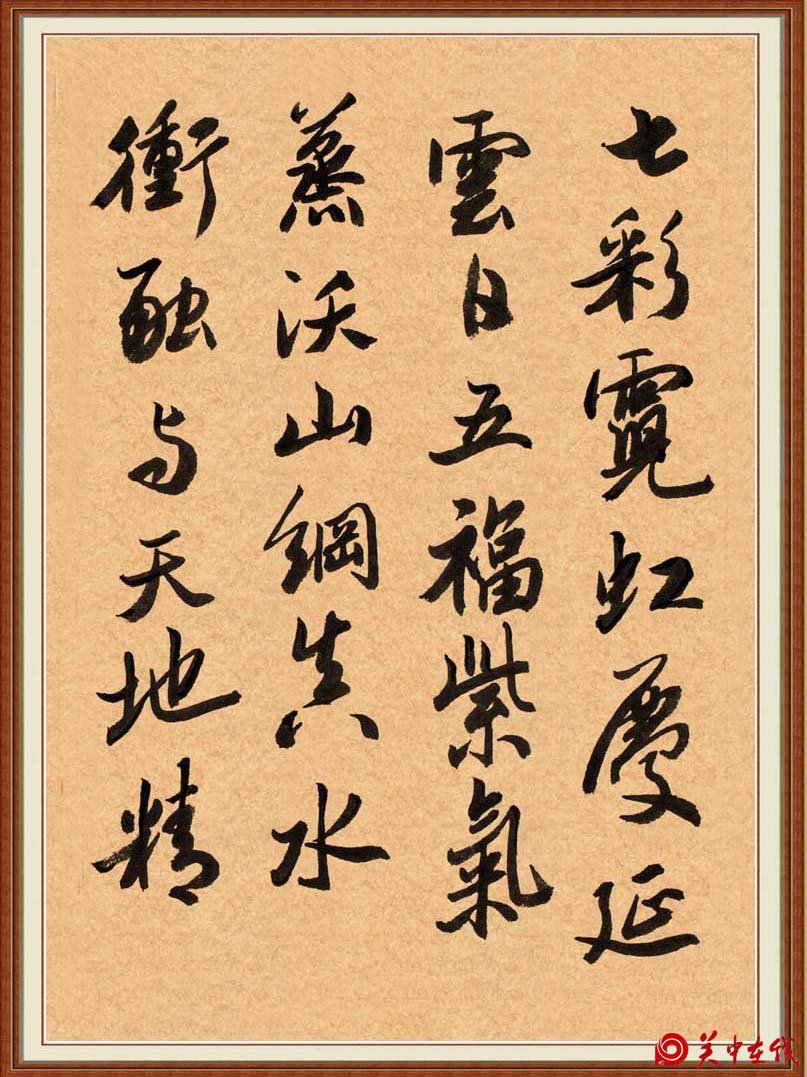 七彩霓虹慶延
雲日五福紫氣
蒸沃山綱真水
衝融与天地精
关中在线